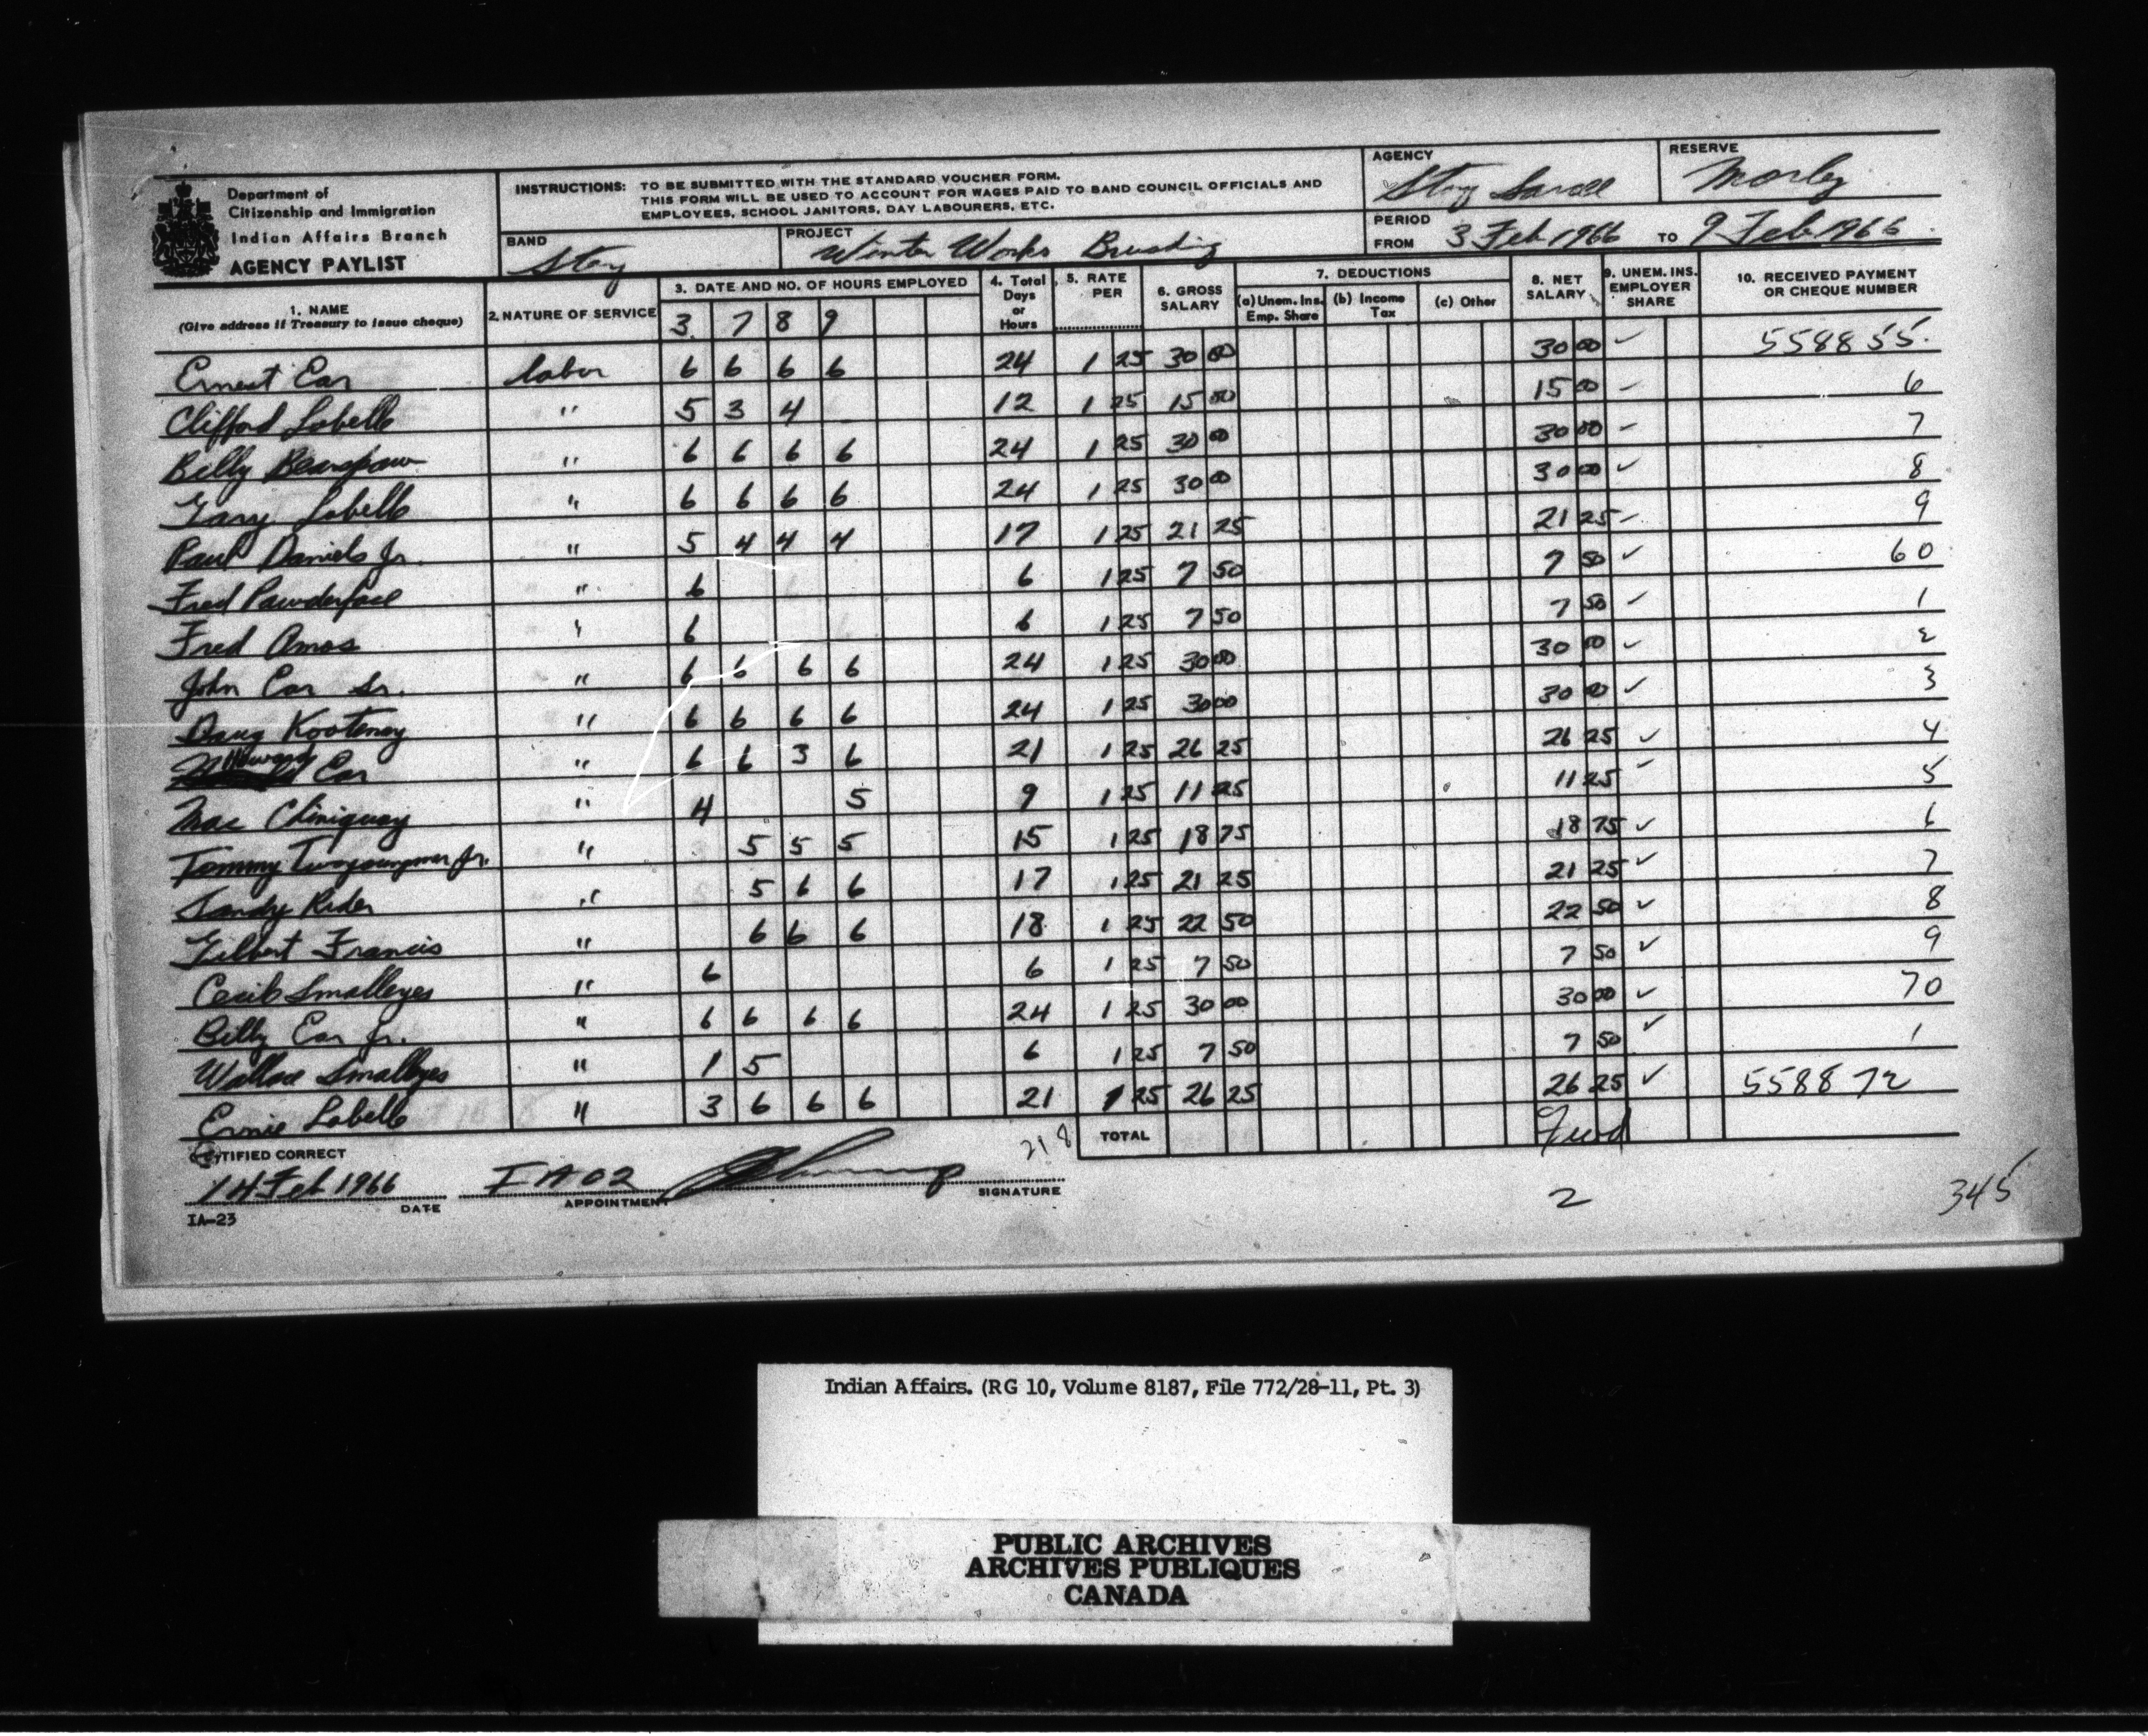 Department of
Citizenship and Immigration
Indian Affairs Branch
AGENCY PAYLIST
INSTRUCTIONS: TO BE SUBMITTED WITH THE STANDARD VOUCHER FORM.
THIS FORM WILL BE USED TO ACCOUNT FOR WAGES PAID TO BAND COUNCIL OFFICIALS AND
EMPLOYEES, SCHOOL JANITORS, DAY LABOURERS, ETC.
AGENCY
Stony
RESERVE
Morley
BAND
Stony
PROJECT
Winter Works Brushing
PERIOD
FROM 3 Feb 1966 TO 9 Feb 1966
1. NAME
(Give address if Treasury to issue cheque)
2. NATURE OF SERVICE
3. DATE AND NO. OF HOURS EMPLOYED
3 7 8 9
4. Total
Days
or
Hours
5. RATE
PER
6. GROSS
SALARY
7. DEDUCTIONS
(a) Unem. Ins. Emp. Share
(b) Income Tax
(c) Other
8. NET
SALARY
9. UNEM. INS.
EMPLOYER
SHARE
10. RECEIVED PAYMENT
OR CHEQUE NUMBER
Ernest Ear labor 6 6 6 6 24 1 25 30 00 30 00 ✓ 558855
Clifford Labelle " 5 3 4 12 1 25 15 00 15 00 ✓ 6
Billy Bearspaw " 6 6 6 6 24 1 25 30 00 30 00 ✓ 7
Gary Labelle " 6 6 6 6 24 1 25 30 00 30 00 ✓ 8
Paul Daniels Jr. " 5 4 4 4 17 1 25 21 25 21 25 ✓ 9
Fred Powderface " 6 6 1 25 7 50 7 50 ✓ 60
Fred Amos " 6 6 1 25 7 50 7 50 ✓ 1
John Ear Sr. " 6 6 6 6 24 1 25 30 00 30 00 ✓ 2
Doug Kootenay " 6 6 6 6 24 1 25 30 00 30 00 ✓ 3
Ear " 6 6 3 6 21 1 25 26 25 26 25 ✓ 4
Mac Chiniquay " 4 5 9 1 25 11 25 11 25 ✓ 5
Tommy Twoyoungmen Jr. " 5 5 5 15 1 25 18 75 18 75 ✓ 6
Sandy Rider " 5 6 6 17 1 25 21 25 21 25 ✓ 7
Gilbert Francis " 6 6 6 18 1 25 22 50 22 50 ✓ 8
Cecil Smalleyes " 6 6 1 25 7 50 7 50 ✓ 9
Billy Ear Jr. " 6 6 6 6 24 1 25 30 00 30 00 ✓ 70
Wallace Smalleyes " 1 5 6 1 25 7 50 7 50 ✓ 1
Ernie Labelle " 3 6 6 6 21 1 25 26 25 26 25 ✓ 558872
CERTIFIED CORRECT
218
TOTAL
14 Feb 1966 IA02
DATE APPOINTMENT SIGNATURE
IA-23
2
345
Indian Affairs. (RG 10, Volume 8187, File 772/28-11, Pt. 3)
PUBLIC ARCHIVES
ARCHIVES PUBLIQUES
CANADA